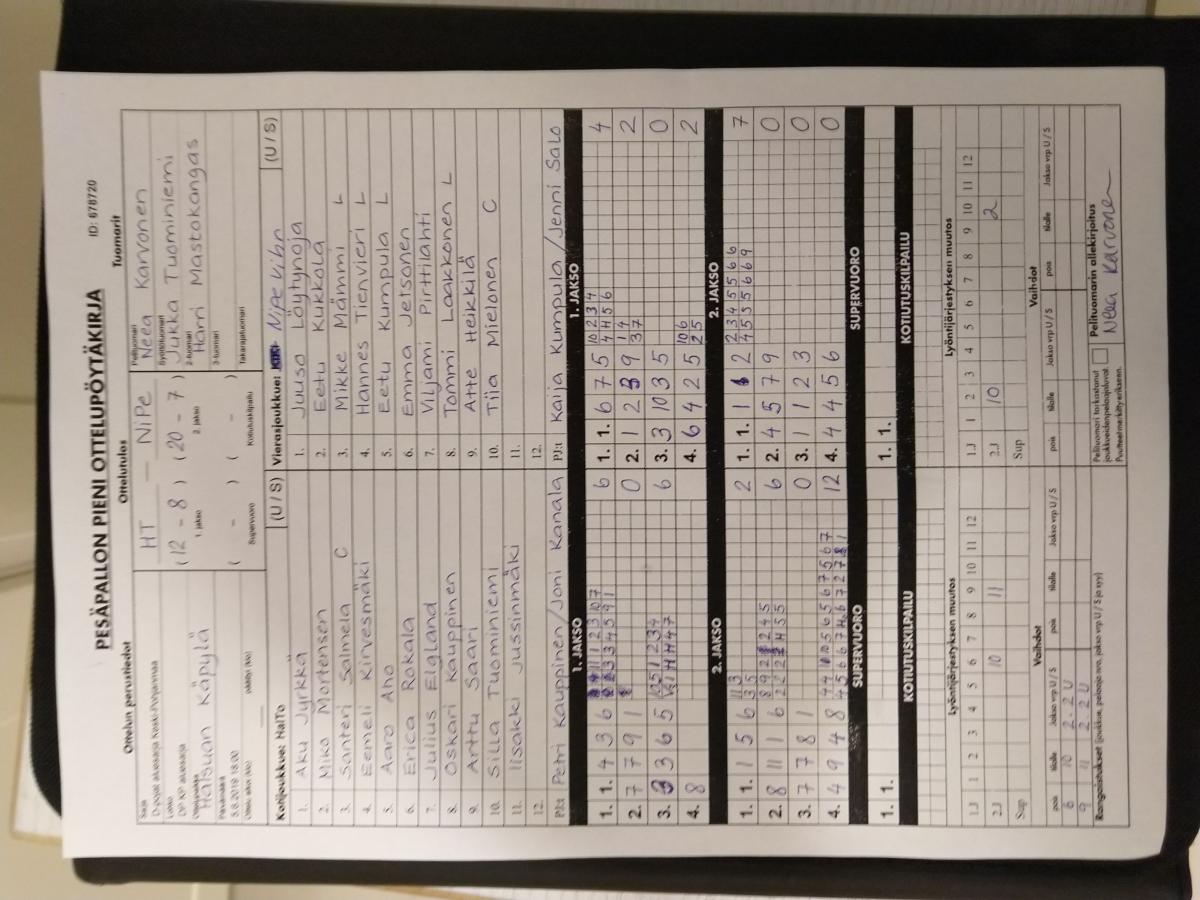 PESÄPALLON PIENI OTTELUPÖYTÄKIRJA
ID: 678720
Ottelun perustiedot
Sarja
D-pojat aluesarja Keski-Pohjanmaa
Lohko
DP KP aluesarja
Ottelupaikka
Halsuan Käpylä
Päivämäärä
8.8.2018 18:00
Ottelu alkoi (klo)
päättyi (klo)
Ottelutulos
HT NiPe
(12 - 8) (20 - 7)
1. jakso 2. jakso
( - ) ( - )
Supervuoro Kotiutuskilpailu
Tuomarit
Pelituomari
Neea Karvonen
Syöttötuomari
Jukka Tuominiemi
2-tuomari
Harri Mastokangas
3-tuomari
Takarajatuomari
Kotijoukkue: HalTo (U / S)
1. Aku Jyrkkä
2. Miko Mortensen
3. Santeri Salmela C
4. Eemeli Kirvesmäki
5. Aaro Aho
6. Erica Rokala
7. Julius Elgland
8. Oskari Kauppinen
9. Arttu Saari
10. Silla Tuominiemi
11. Iisakki Jussinmäki
12.
PJ:t Petri Kauppinen/Joni Kanala
Vierasjoukkue: NiPe Vihr (U / S)
1. Juuso Löytynoja
2. Eetu Kukkola
3. Mikke Mämmi L
4. Hannes Tienvieri L
5. Eetu Kumpula L
6. Emma Jetsonen
7. Viljami Pirttilahti
8. Tommi Laakkonen L
9. Atte Heikkilä
10. Tiia Mielonen C
11.
12.
PJ:t Kaija Kumpula/Jenni Salo
1. JAKSO
1. 1. 4 3 6
6
2. 7 7 9 1
0
3. 3 6 5
6
4. 8
2. JAKSO
1. 1. 1 5 6
2
2. 8 11 1 6
6
3. 7 7 8 1
0
4. 4 9 4 8
12
SUPERVUORO
1. 1.
KOTIUTUSKILPAILU
1. JAKSO
1. 1. 6 7 5
4
2. 1 2 3 9
2
3. 3 10 3 5
0
4. 6 4 2 5
2
2. JAKSO
1. 1. 1 2
7
2. 4 5 7 9
0
3. 1 1 2 3
0
4. 4 4 5 6
0
SUPERVUORO
1. 1.
KOTIUTUSKILPAILU
Lyöntijärjestyksen muutos
1 2 3 4 5 6 7 8 9 10 11 12
1.J
2.J 10 11
Sup
Vaihdot
pois tilalle Jakso vrp U / S pois tilalle Jakso vrp U / S
6 10 2. 2 U
9 11 2 2 U
Lyöntijärjestyksen muutos
1 2 3 4 5 6 7 8 9 10 11 12
1.J
2.J 10 2
Sup
Vaihdot
pois tilalle Jakso vrp U / S pois tilalle Jakso vrp U / S
Rangaistukset (joukkue, pelaaja nro, jakso vrp U / S ja syy)
Pelituomari tarkastanut
joukkueiden pelaajaluvat.
Puutteet merkitty erikseen.
Pelituomarin allekirjoitus
Neea Karvonen